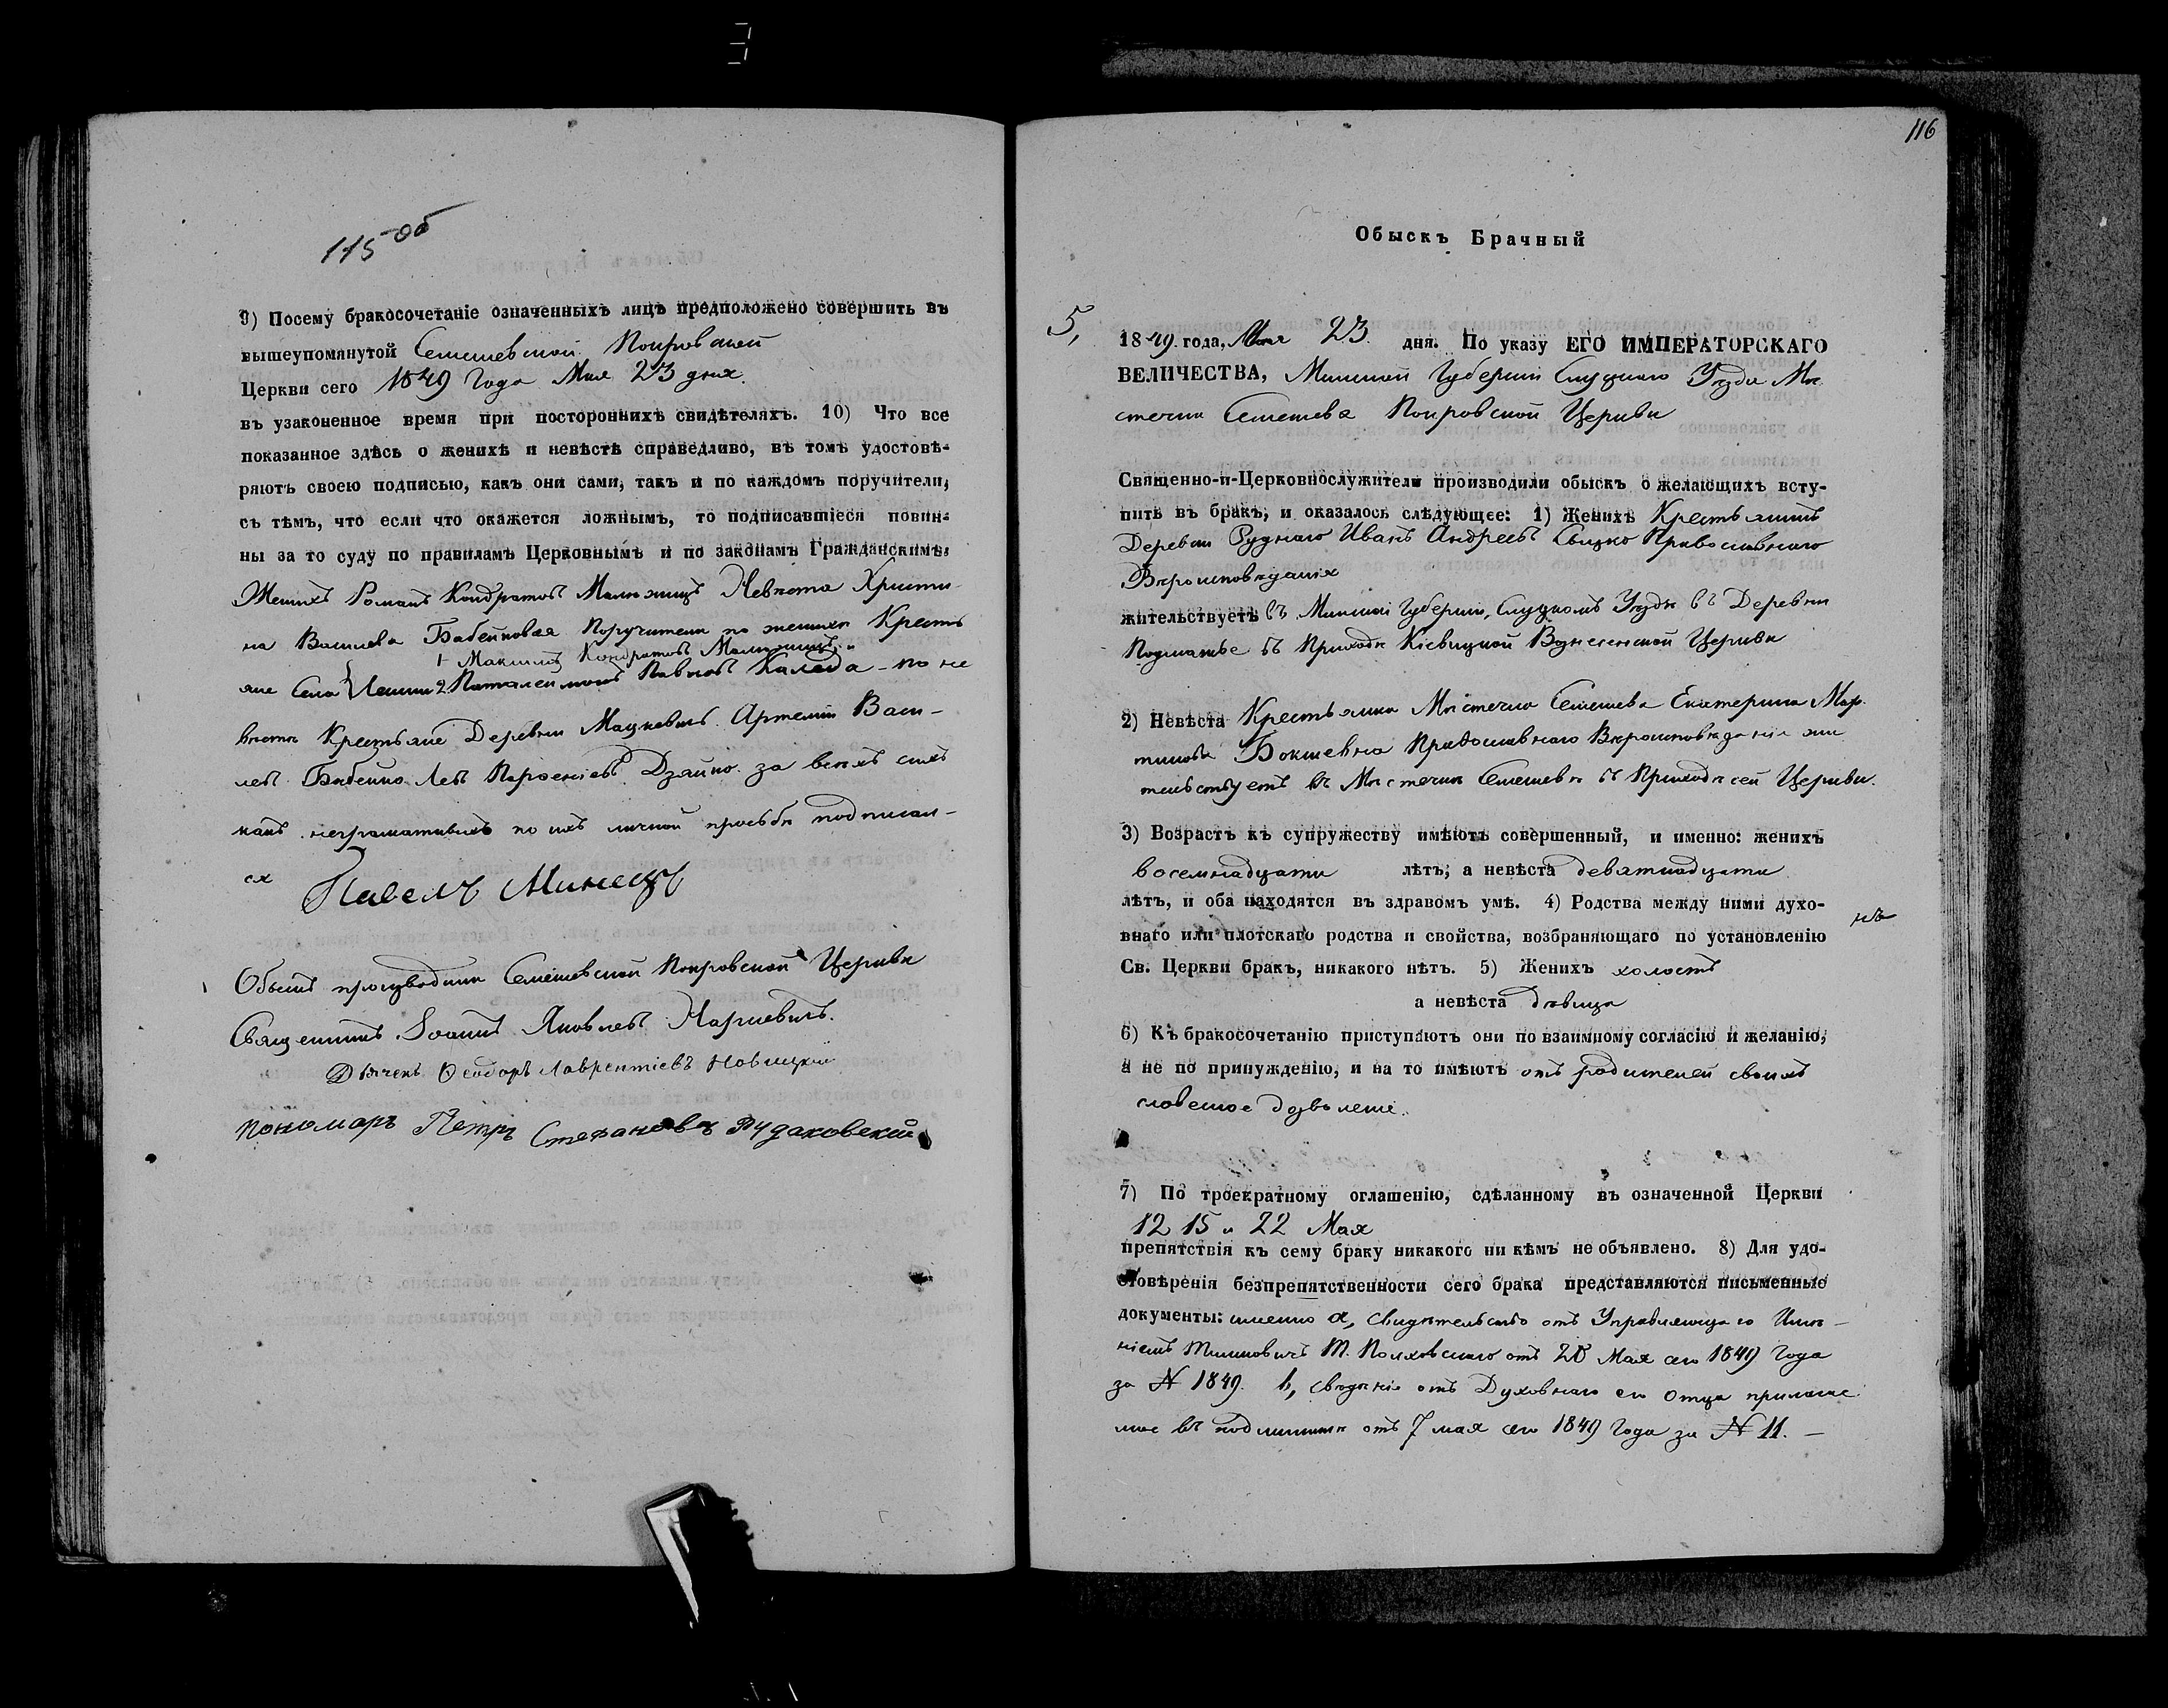 115 об
9) Посему бракосочетаніе означенныхъ лицъ предположено совершить въ
вышеупомянутой Семежевской Покровской
Церкви сего 1849 Года Мая 23 дня.
въ узаконенное время при постороннихъ свидѣтеляхъ. 10) Что все
показанное здѣсь о женихѣ и невѣстѣ справедливо, въ томъ удостовѣ-
ряютъ своею подписью, какъ они сами, такъ и по каждомъ поручители,
съ тѣмъ, что если что окажется ложнымъ, то подписавшіеся повин-
ны за то суду по правиламъ Церковнымъ и по законамъ Гражданскимъ:
Женихъ Романъ Кондратовъ Невѣста Христи
на Бабейковая Поручители по женихѣ Кресть
1 Максимъ Кондратовъ
яне Села 2 Павловъ Каледа - по не
вѣстѣ Крестьяне Деревни Мацкевичъ. Артемій Васи-
левъ Бабейко Левъ Дзяйко. за всѣхъ сихъ
какъ неграматныхъ по ихъ личной просьбѣ подписал-
ся Павелъ
Обыскъ производили Семежевской Покровской Церкви
Священникъ Іоаннъ Яковлевъ
Дьячекъ Ѳеодоръ Лаврентіевъ Новицкій
Пономаръ Петръ Стефановъ Рудаковскій
116
Обыскъ Брачный
5,
1849. года, Мая 23 дня. По указу ЕГО ИМПЕРАТОРСКАГО
ВЕЛИЧЕСТВА, Минской Губерніи Слуцкаго Уѣзда Мѣ
стечка Семежева Покровской Церкви
Священно-и-Церковнослужители производили обыскъ о желающихъ всту-
пить въ бракъ, и оказалось слѣдующее: 1) Женихъ Крестьянинъ
Деревни Руднаго Иванъ Андреевъ Православнаго
Вѣроисповѣданія
жительствуетъ въ Минской Губерніи, Слуцкомъ Уѣздѣ въ Деревни
въ Приходѣ Кіевицкой Вознесенской Церкви
2) Невѣста Крестьянка Мѣстечка Семежева Екатерина Мар
тинова Бокшевна Православнаго Вѣроисповѣданія жи
тельствуетъ въ Мѣстечкѣ Семежевѣ въ Приходѣ сей Церкви.
3) Возрастъ къ супружеству имѣютъ совершенный, и именно: женихъ
восемнадцати лѣтъ; а невѣста девятнадцати
лѣтъ, и оба находятся въ здравомъ умѣ. 4) Родства между ними духо-
внаго или плотскаго родства и свойства, возбраняющаго по установленію
Св. Церкви бракъ, никакого нѣтъ. 5) Женихъ холостъ
а невѣста дѣвица
6) Къ бракосочетанію приступаютъ они по взаимному согласію и желанію,
а не по принужденію, и на то имѣютъ отъ родителей своихъ
словесное дозволеніе.
7) По троекратному оглашенію, сдѣланному въ означенной Церкви
12 15 и 22 Мая
препятствія къ сему браку никакого ни кѣмъ не объявлено. 8) Для удо-
стовѣренія безпрепятственности сего брака представляются письменные
документы: именно а, свидѣтельство отъ Управляющаго Имѣ-
ніемъ отъ 20 Мая сего 1849 Года
за N 1849. b, свѣденіе отъ Духовнаго его Отца прилагае
мое въ подлинникѣ отъ 7 мая сего 1849 Года за N 11. —